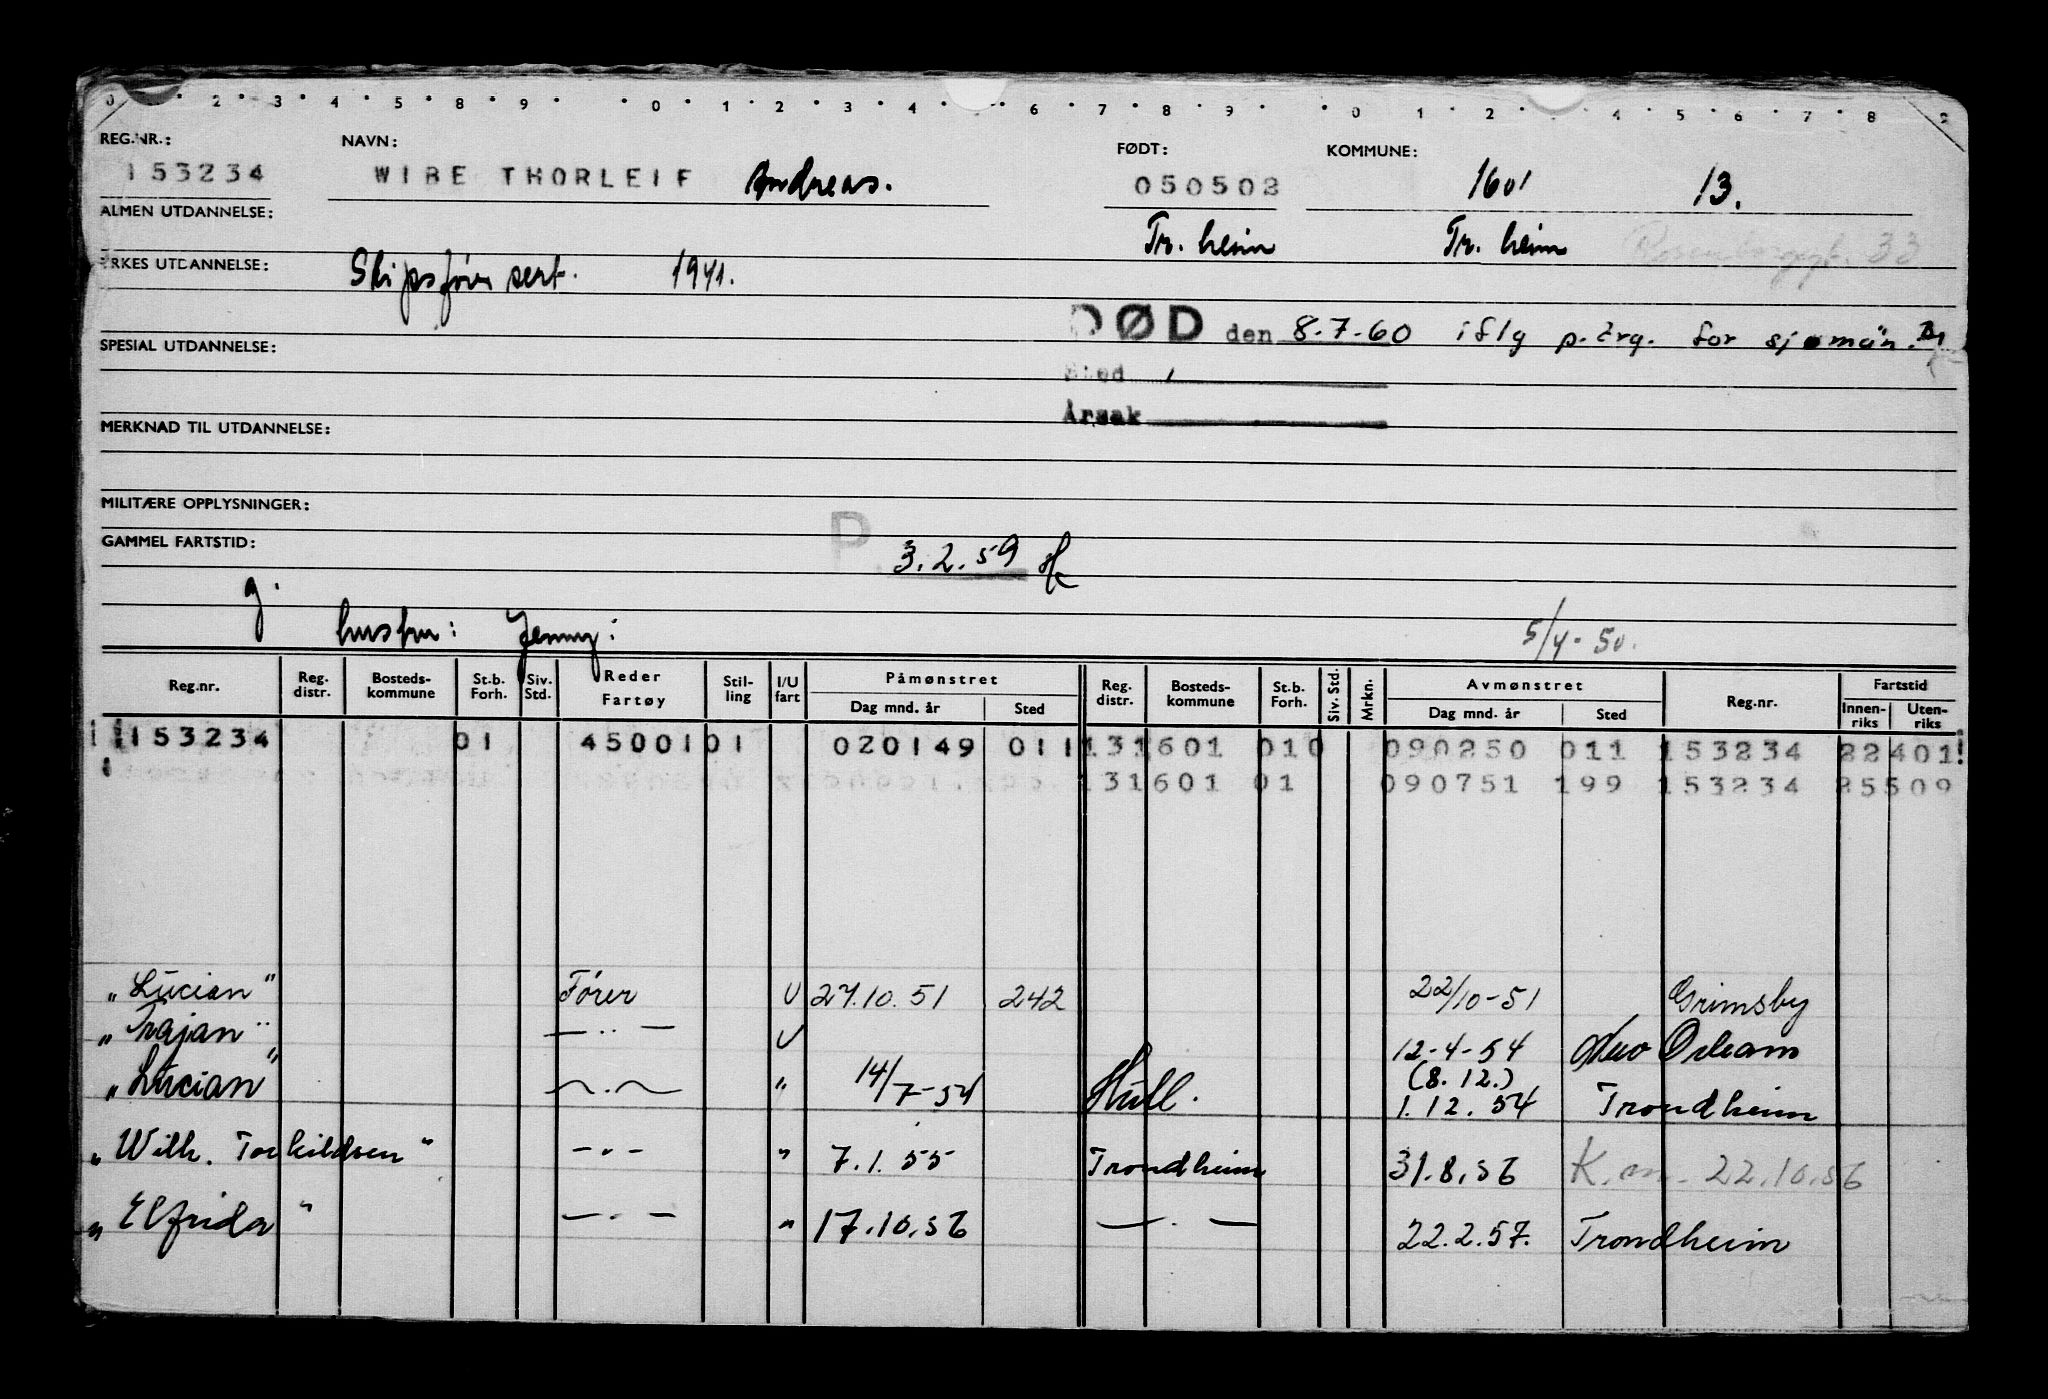 0 2 3 4 5 8 9 0 1 2 3 4 6 7 8 9 0 1 2 4 5 6 7 8 2
REG.NR.: NAVN: FØDT: KOMMUNE:
153234 WIBE THORLEIF Andreas. 050502 1601 13.
ALMEN UTDANNELSE: Tr. heim Tr. heim Rosenborggt. 33
YRKES UTDANNELSE: Skipsfører sert. 1941.
DØD den 8-7-60 iflg p.trg. for sjømän.
SPESIAL UTDANNELSE:
Sted
Årsak
MERKNAD TIL UTDANNELSE:
MILITÆRE OPPLYSNINGER:
GAMMEL FARTSTID: P 3.2.59
g. hustru: Jenny: 5/4-50.
Reg.nr. Reg. distr. Bosteds-kommune St.b. Forh. Siv. Std. Reder Fartøy Stil-ling I/U fart Påmønstret Dag mnd. år Sted Reg. distr. Bosteds-kommune St.b. Forh. Siv. Std. Mrkn. Avmønstret Dag mnd. år Sted Reg.nr. Fartstid Innen-riks Uten-riks
153234 01 4500101 020149 011 131601 010 090250 011 153234 22401
131601 01 090751 199 153234 25509
"Lucian" Fører U 27.10.51 242 22/10-51 Grimsby
"Trajan" — " — U 12-4-54 New Orleans
"Lucian" — " 14/7-54 Hull. (8.12.) 1.12.54 Trondheim
"Wilh. Torkildsen" — . — " 7.1.55 Trondheim 31.8.56 K. an. 22.10.56
"Elfrida" — . — " 17.10.56 — . — 22.2.57. Trondheim